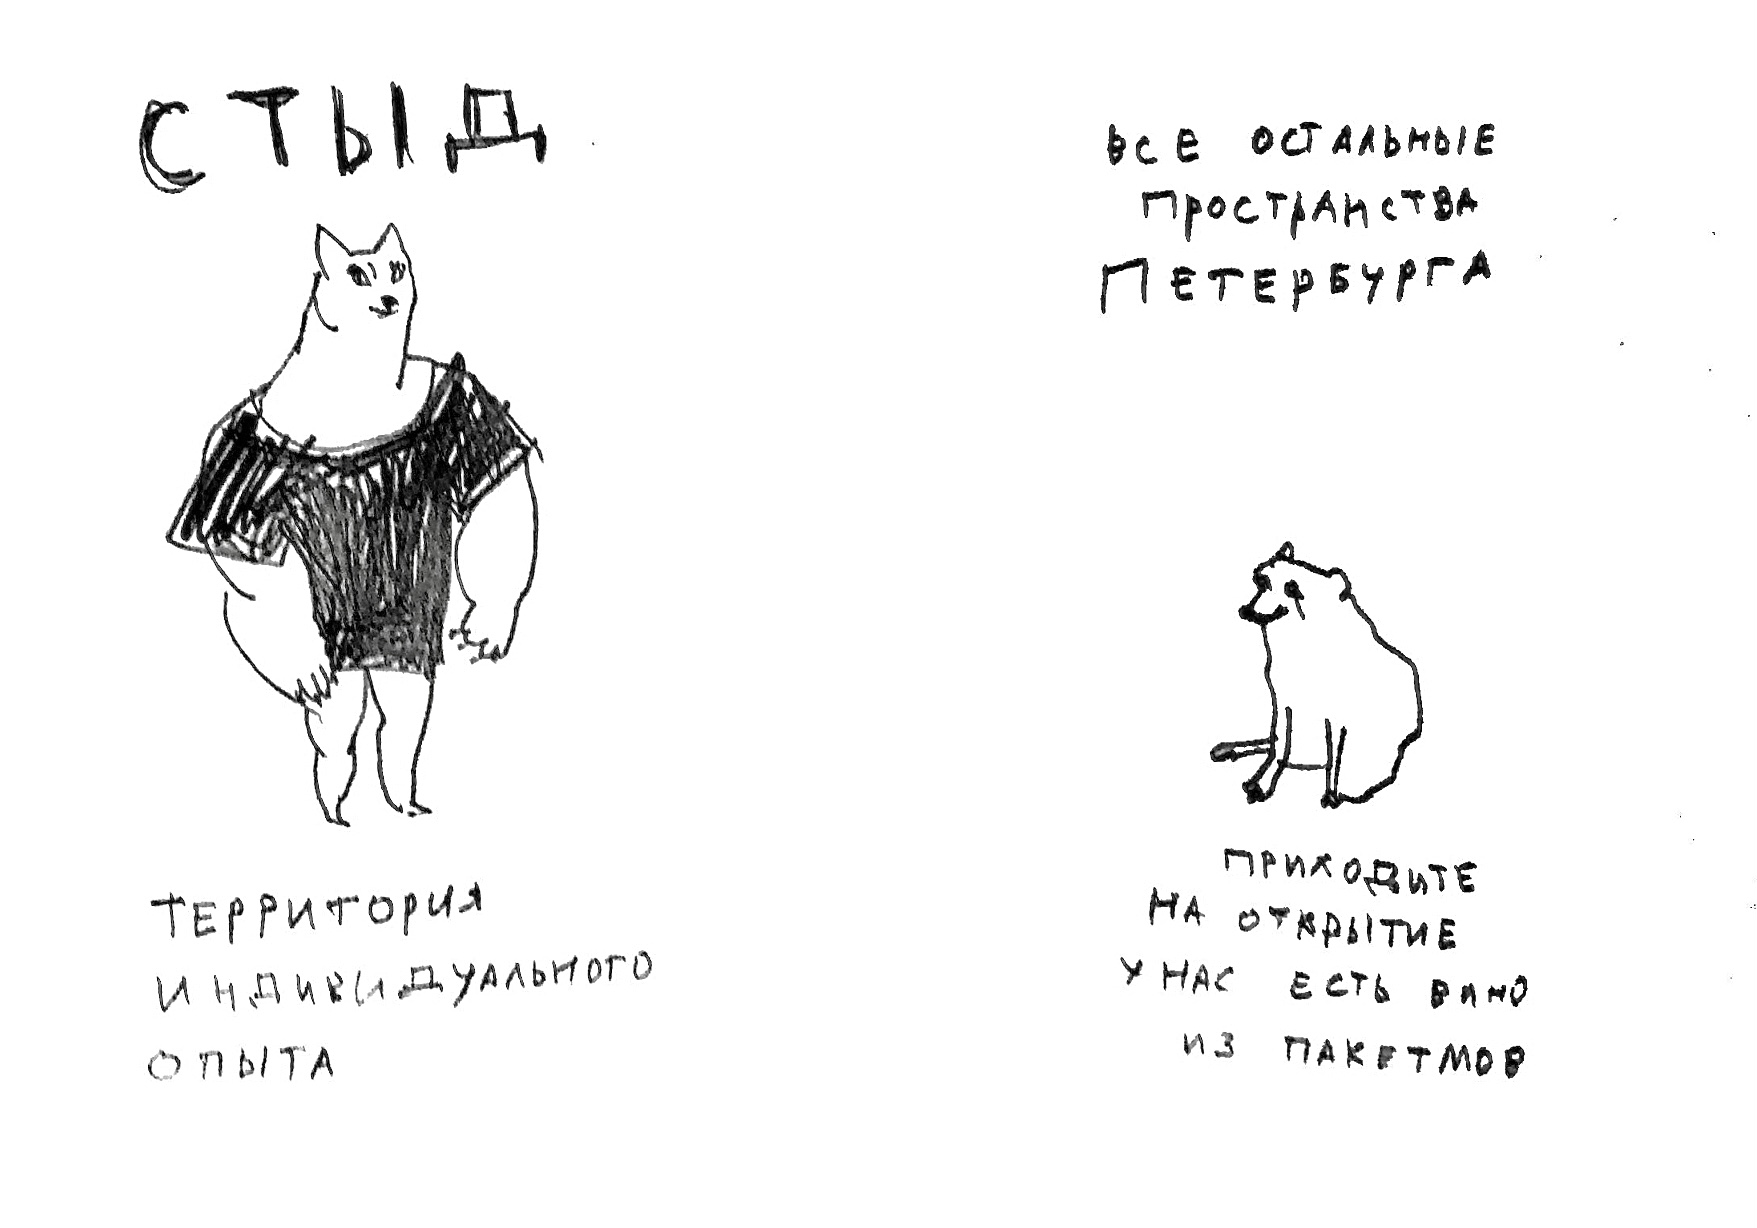 СТЫД
ТЕРРИТОРИЯ
ИНДИВИДУАЛЬНОГО
ОПЫТА
ВСЕ ОСТАЛЬНЫЕ
ПРОСТРАНСТВА
ПЕТЕРБУРГА
ПРИХОДИТЕ
НА ОТКРЫТИЕ
У НАС ЕСТЬ ВИНО
ИЗ ПАКЕТМОВ